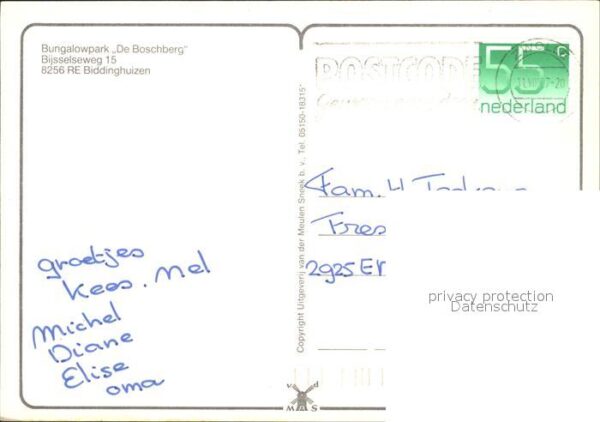 Bungalowpark „De Boschberg"
Bijsselseweg 15
8256 RE Biddinghuizen
groetjes
Kees. Mel
Michel
Diane
Elise
oma
Copyright Uitgeverij van der Meulen Sneek b.v., Tel. 05150-18315*
POSTCODE
55 c
nederland
Fam. H
2925 E
privacy protection
Datenschutz
v d
MAS